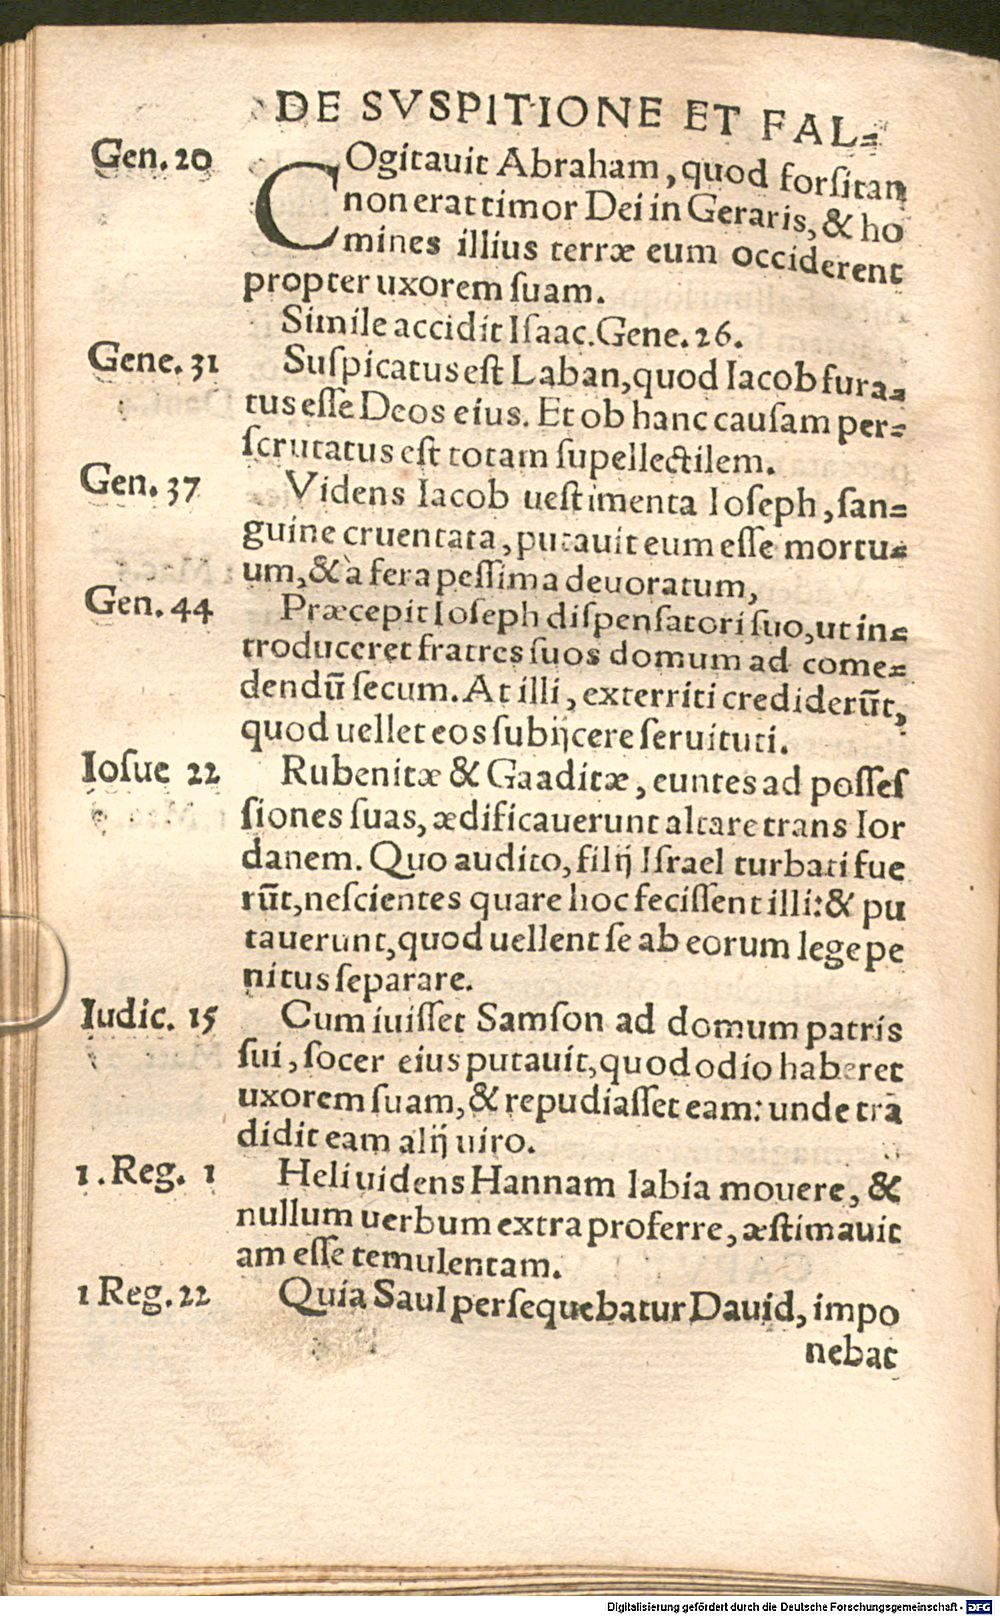 DE SVSPITIONE ET FAL⸗
Gen. 20
COgitauit Abraham, quod forſitan
non erat timor Dei in Geraris, & ho
mines illius terræ eum occiderent
propter uxorem ſuam.
Simile accidit Iſaac. Gene. 26.
Gene. 31
Suſpicatus eſt Laban, quod Iacob fura⸗
tus eſſe Deos eius. Et ob hanc cauſam per⸗
ſcrutatus eſt totam ſupellectilem.
Gen. 37
Videns Iacob ueſtimenta Ioſeph, ſan⸗
guine cruentata, putauit eum eſſe mortu⸗
um, & à fera peſſima deuoratum,
Gen. 44
Præcepit Ioſeph diſpenſatori ſuo, ut in⸗
troduceret fratres ſuos domum ad come⸗
dendū ſecum. At illi, exterriti crediderūt,
quod uellet eos ſubijcere ſeruituti.
Ioſue 22
Rubenitæ & Gaaditæ, euntes ad poſſeſ
ſiones ſuas, ædificauerunt altare trans Ior
danem. Quo audito, filij Iſrael turbati fue
rūt, neſcientes quare hoc feciſſent illi: & pu
tauerunt, quod uellent ſe ab eorum lege pe
nitus ſeparare.
Iudic. 15
Cum iuiſſet Samſon ad domum patris
ſui, ſocer eius putauit, quod odio haberet
uxorem ſuam, & repudiaſſet eam: unde tra
didit eam alij uiro.
1. Reg. 1
Heli uidens Hannam labia mouere, &
nullum uerbum extra proferre, æſtimauit
am eſſe temulentam.
1 Reg. 22
Quia Saul perſequebatur Dauid, impo
nebat
Digitalisierung gefördert durch die Deutsche Forschungsgemeinschaft - DFG